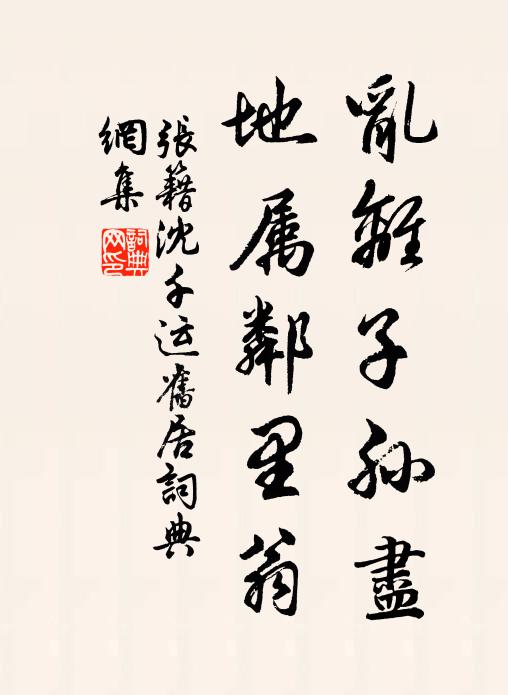 亂離子孫盡
地属鄰里翁
張籍沈千运舊居詞典
網集
詞典
网印